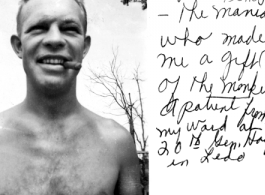 - The
who made
me a gift
of the monkey
A patient from
my ward at
20th Gen. Hos
in Ledo